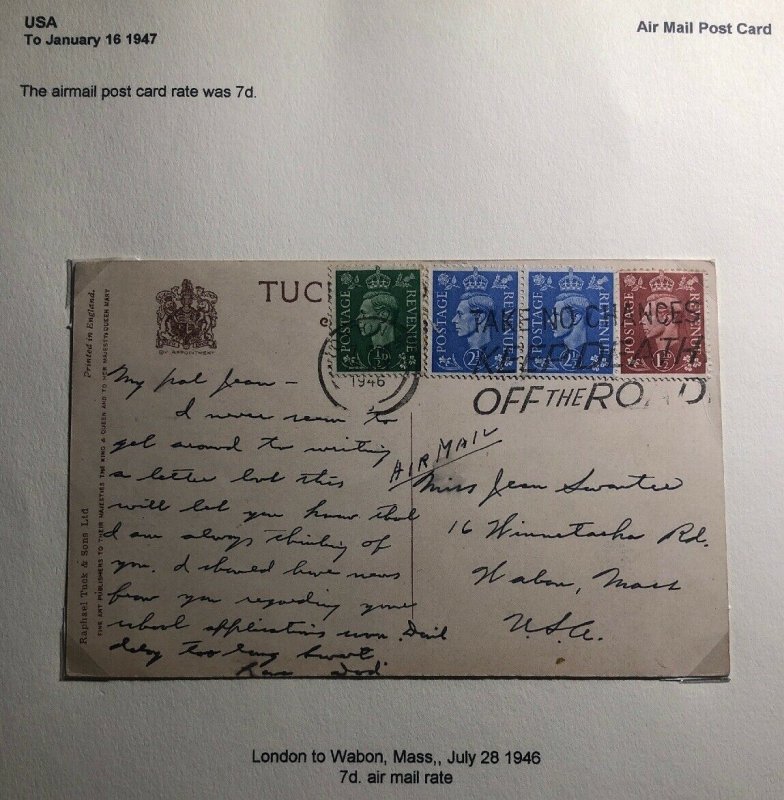 USA
To January 16 1947
Air Mail Post Card
The airmail post card rate was 7d.
Printed in England.
Raphael Tuck & Sons Ltd.
FINE ART PUBLISHERS TO THEIR MAJESTIES THE KING & QUEEN AND TO HER MAJESTY QUEEN MARY
BY APPOINTMENT
TUC
POSTAGE REVENUE ½D
POSTAGE REVENUE 2½
POSTAGE REVENUE 2½
POSTAGE REVENUE 1½
1946
TAKE NO CHANCES
KEEP DEATH
OFF THE ROAD
My pal Jean –
I never seem to
get around to writing
a letter but this
will let you know that
I am always thinking of
you. I should have news
from you regarding your
school applications soon. Don't
delay too long Sweet
Love Dad
AIR MAIL
Miss Jean Swartee
16 Winnetaska Rd.
Wabon, Mass
U.S.A.
London to Wabon, Mass,, July 28 1946
7d. air mail rate